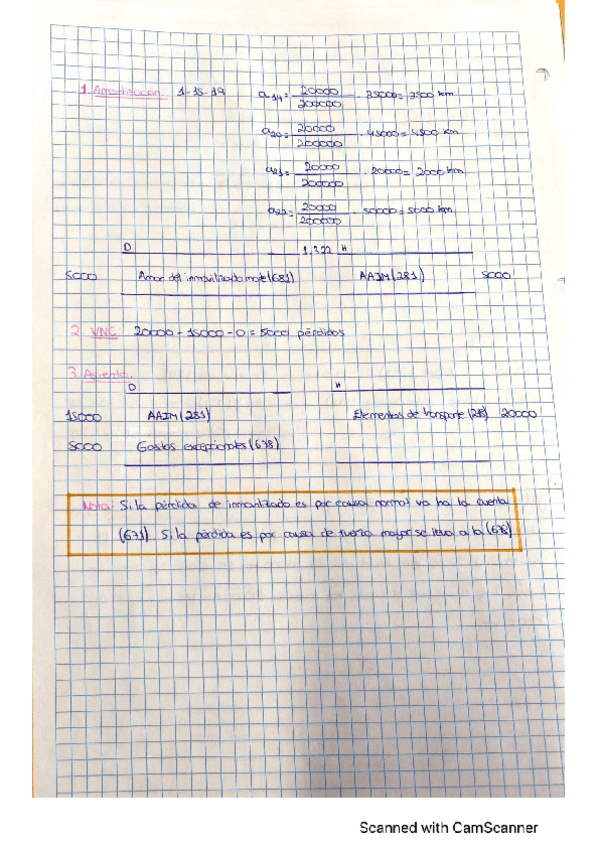 1. Amortización: 1-15-19 a19= 20000/200000 · 35000= 3500 km
a20= 20000/200000 · 45000= 4500 km
a21= 20000/200000 · 20000= 2000 km
a22= 20000/200000 · 50000= 5000 km
D 1.3.22 H
5000 Amor del inmovilizado mate (681) AAIM (281) 5000
2. VNC: 20000 - 15000 - 0 = 5000 pérdidas
3. Asiento.
D H
15000 AAIM (281) Elementos de transporte (218) 20000
5000 Gastos excepcionales (678)
Nota: Si la pérdida de inmovilizado es por causa normal va ha la cuenta
(671). Si la pérdida es por causa de fuerza mayor se lleva a la (678)
Scanned with CamScanner